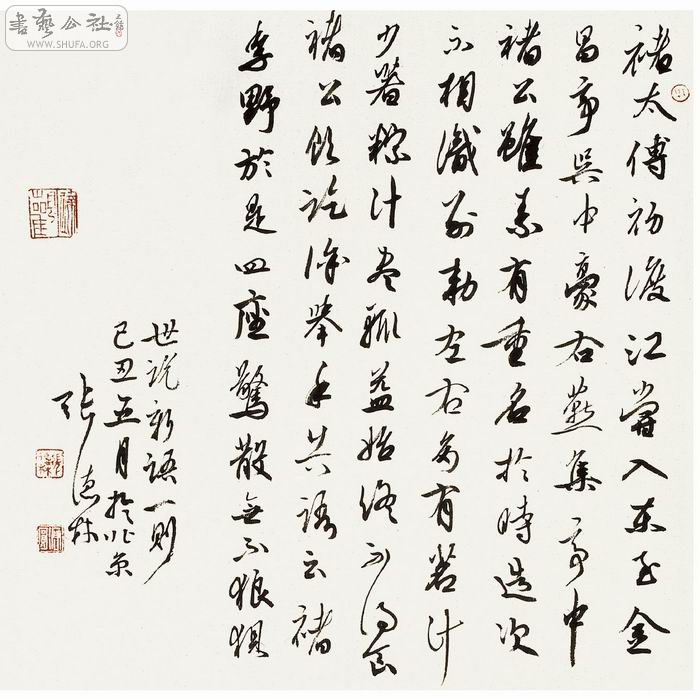 書藝公社
WWW.SHUFA.ORG
褚太傅初渡江嘗入東至金
昌亭吳中豪右燕集亭中
褚公雖素有重名於時造次
不相識別勅左右多有茗汁
少著粽汁盡輒益始終不得食
褚公飲訖徐舉手共語云褚
季野於是四座驚散無不狼狽
世說新語一則
己丑五月於北京
張德林